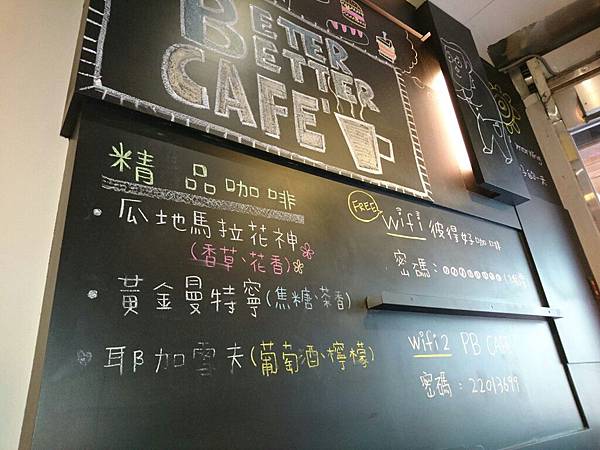 BETER
BETTER
CAFE'
精品咖啡
瓜地馬拉花神
(香草、花香)
黃金曼特寧(焦糖、茶香)
耶加雪夫(葡萄酒、檸檬)
FREE
wifi 彼得好咖啡
密碼:
wifi2 PB CAFE
密碼:22013699